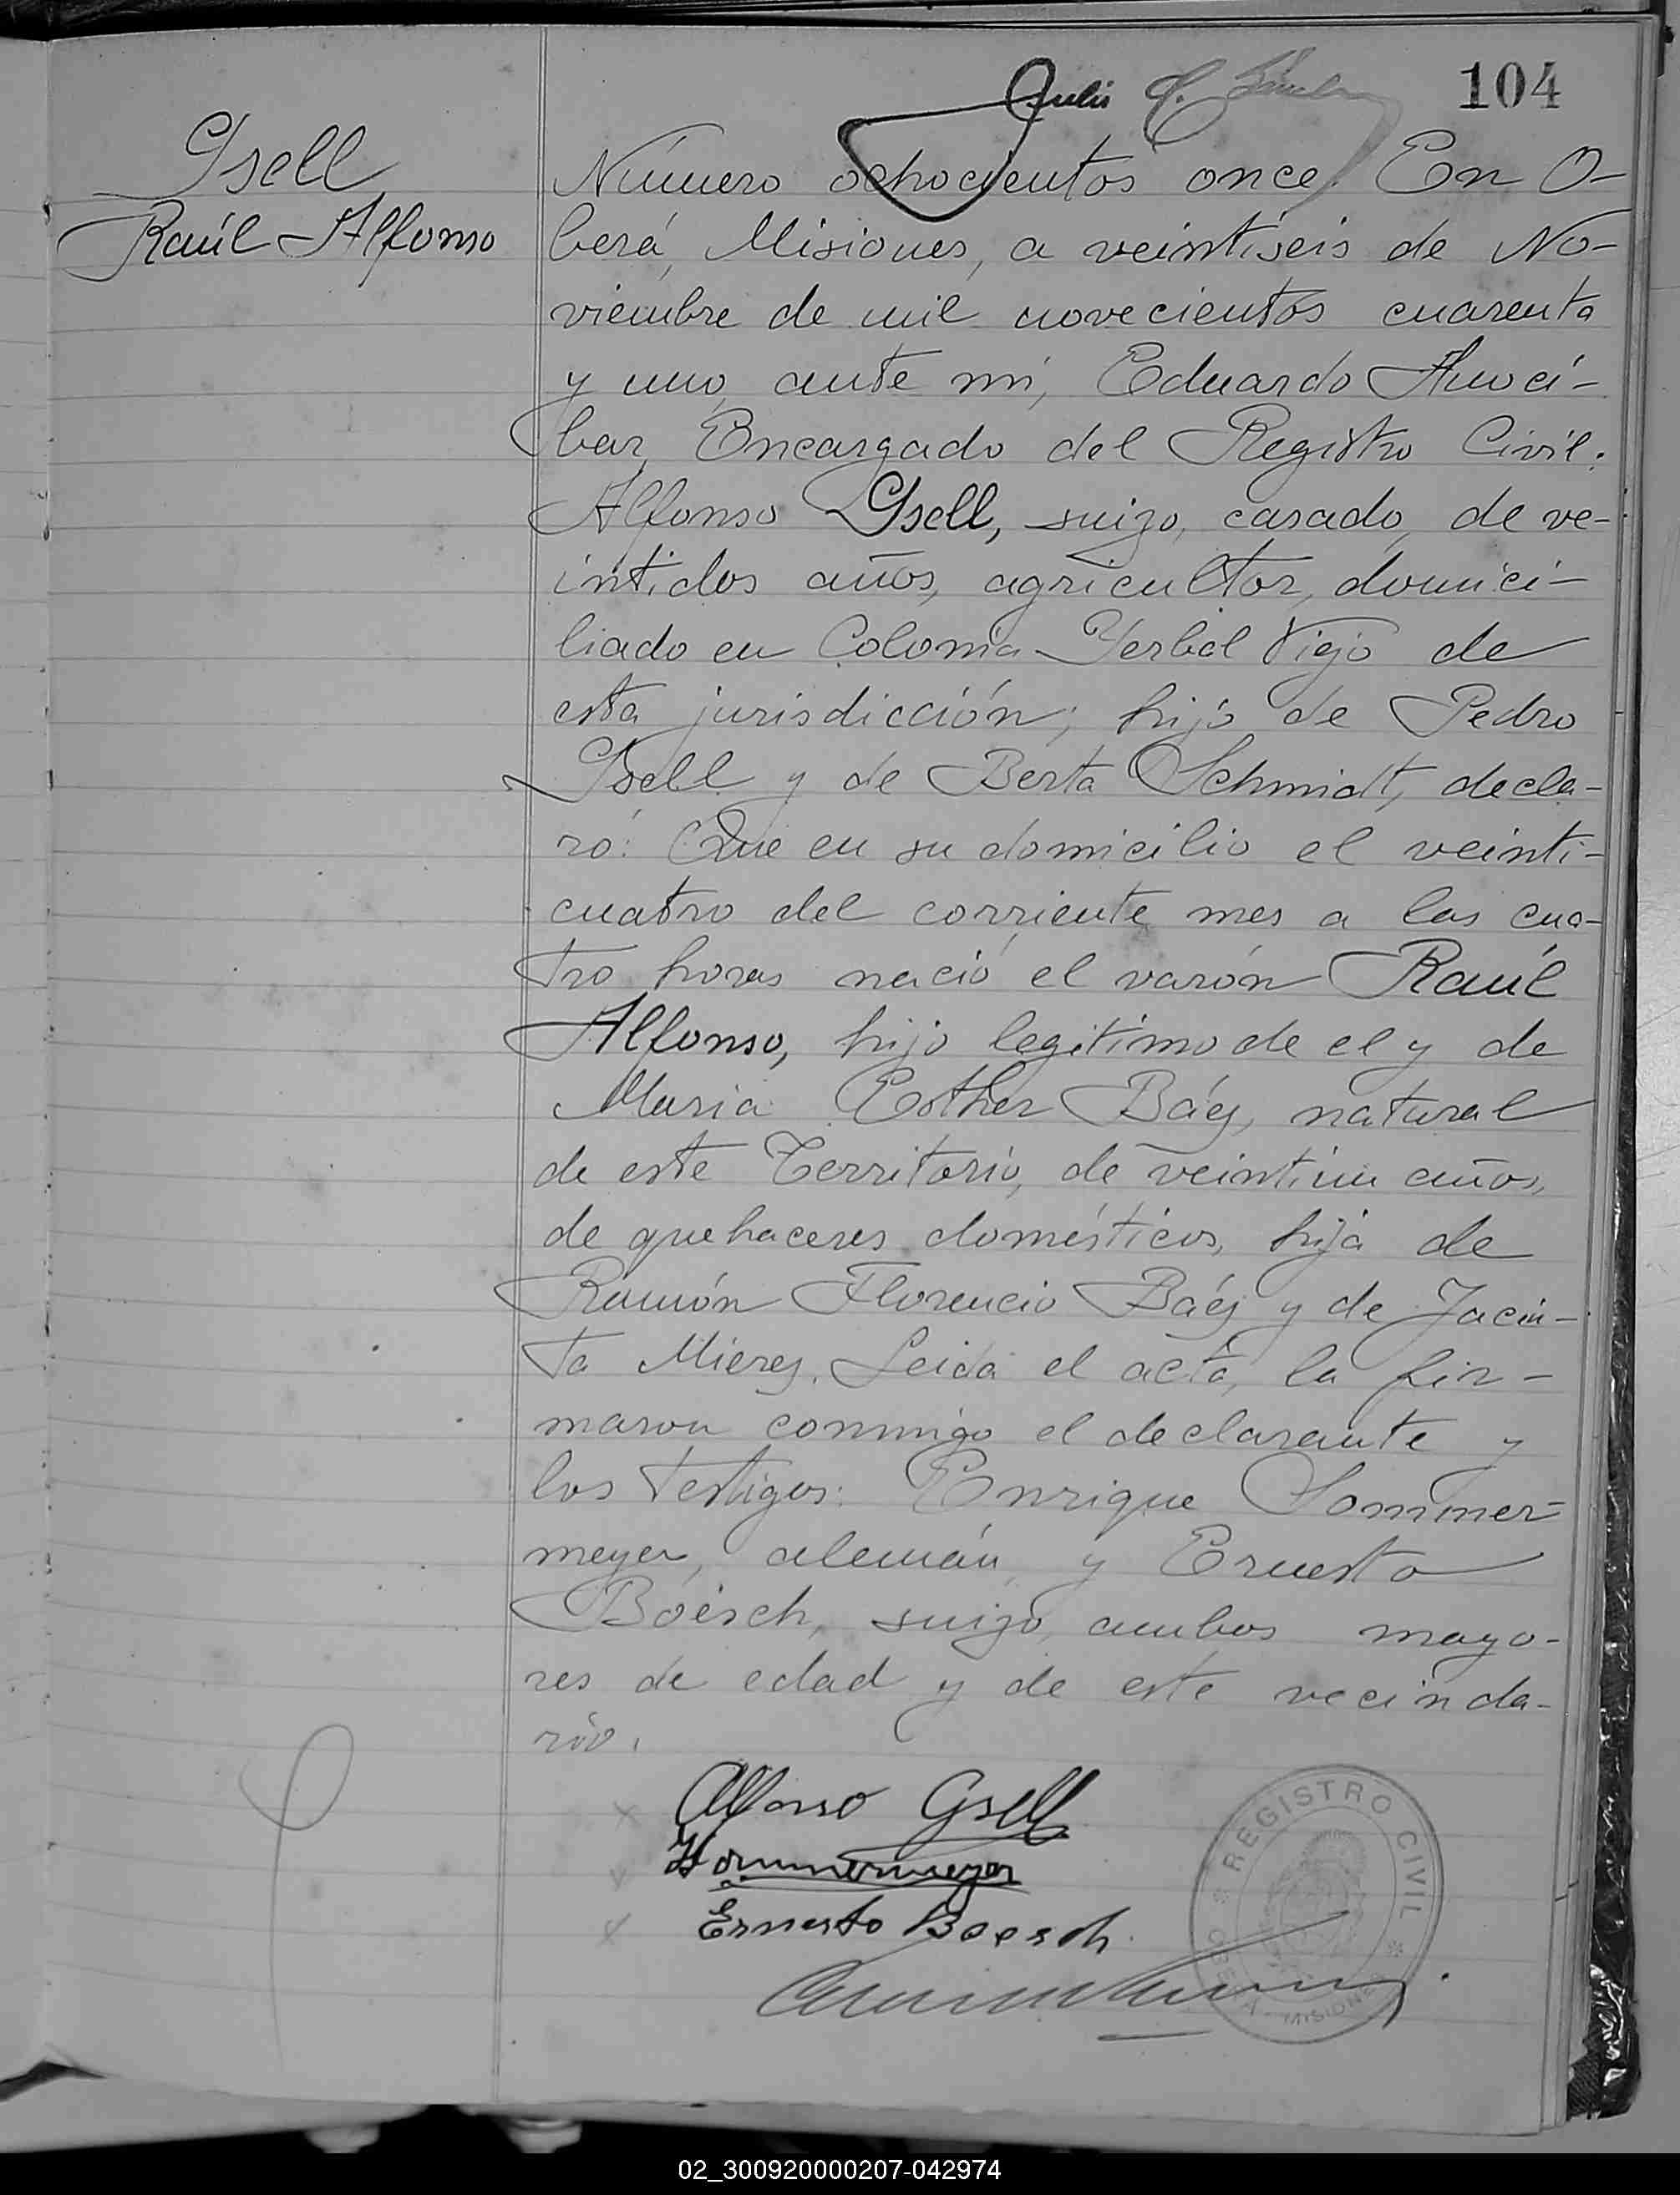 104
Gsell
Raúl Alfonso
Número ochocientos once. En O-
berá, Misiones, a veintiseis de No-
viembre de mil novecientos cuarenta
y uno, ante mi, Eduardo
bar, Encargado del Registro Civil:
Alfonso Gsell, suizo, casado, de ve-
intidos años, agricultor, domici-
liado en Colonia Yerbal Viejo de
esta jurisdicción; hijo de Pedro
Gsell y de Berta Schmidt, decla-
ró: Que en su domicilio el veinti-
cuatro del corriente mes a las cua-
tro horas nació el varón Raúl
Alfonso, hijo legítimo de el y de
Maria Esther Báez, natural
de este Territorio, de veintiun años,
de quehaceres domésticos, hija de
Ramón Florencio Báez y de Jacin-
ta Mierez. Leida el acta, la fir-
maron conmigo el declarante y
los testigos: Enrique Sommer-
meyer, alemán, y Ernesto
Boesch, suizo, ambos mayo-
res de edad y de este vecinda-
rio.
Alfonso Gsell
Hommermeyer
Ernesto Boesch
REGISTRO CIVIL
OBERÁ - MISIONES
02_300920000207-042974